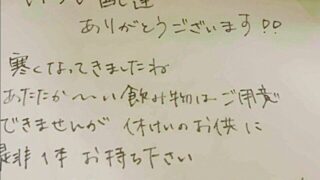 いつも配達
ありがとうございます!!
寒くなってきましたね
あたたか〜〜い飲み物はご用意
できませんが 休けいのお供に
是非 1本 お持ち下さい